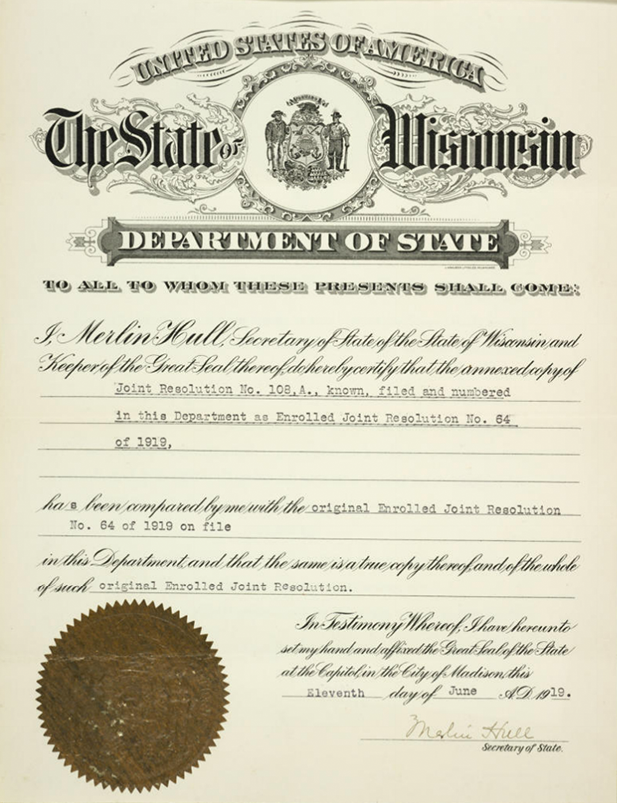 UNITED STATES OF AMERICA
The State of Wisconsin
DEPARTMENT OF STATE
TO ALL TO WHOM THESE PRESENTS SHALL COME:
I, Merlin Hull, Secretary of State of the State of Wisconsin and
Keeper of the Great Seal thereof, do hereby certify that the annexed copy of
Joint Resolution No. 108,A., known, filed and numbered
in this Department as Enrolled Joint Resolution No. 64
of 1919,
has been compared by me with the original Enrolled Joint Resolution
No. 64 of 1919 on file
in this Department, and that the same is a true copy thereof, and of the whole
of such original Enrolled Joint Resolution.
In Testimony Whereof, I have hereunto
set my hand and affixed the Great Seal of the State
at the Capitol, in the City of Madison, this
Eleventh day of June A.D. 1919.
Merlin Hull
Secretary of State.